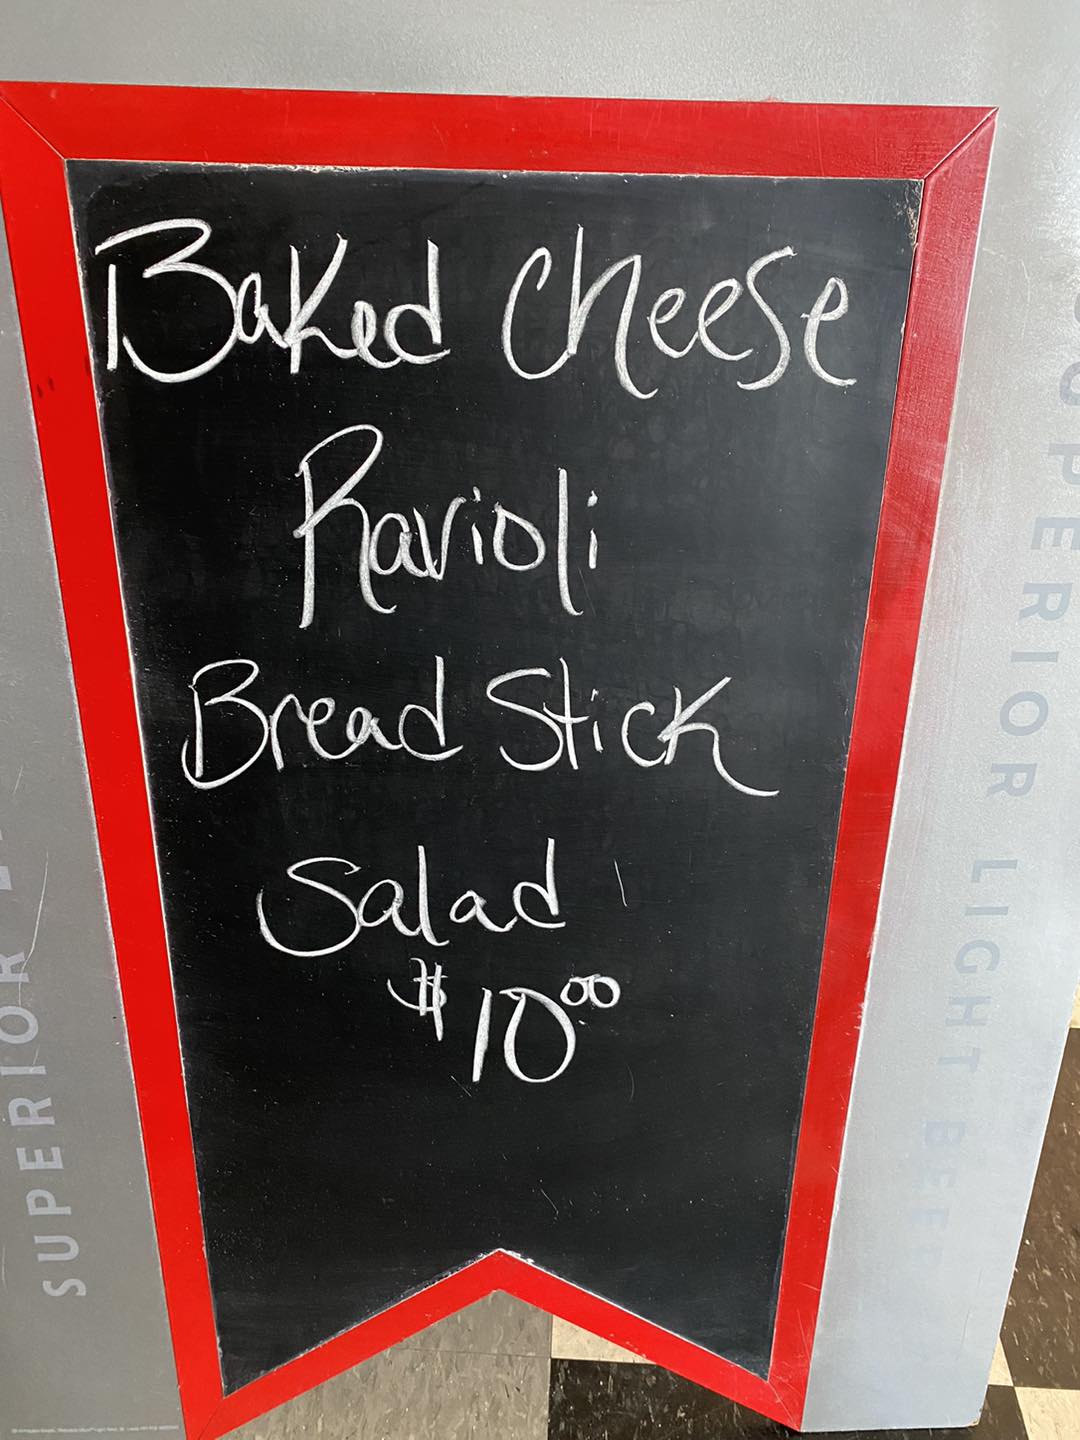 Baked Cheese
Ravioli
Bread Stick
Salad
$10.00
SUPERIOR
SUPERIOR LIGHT BEE